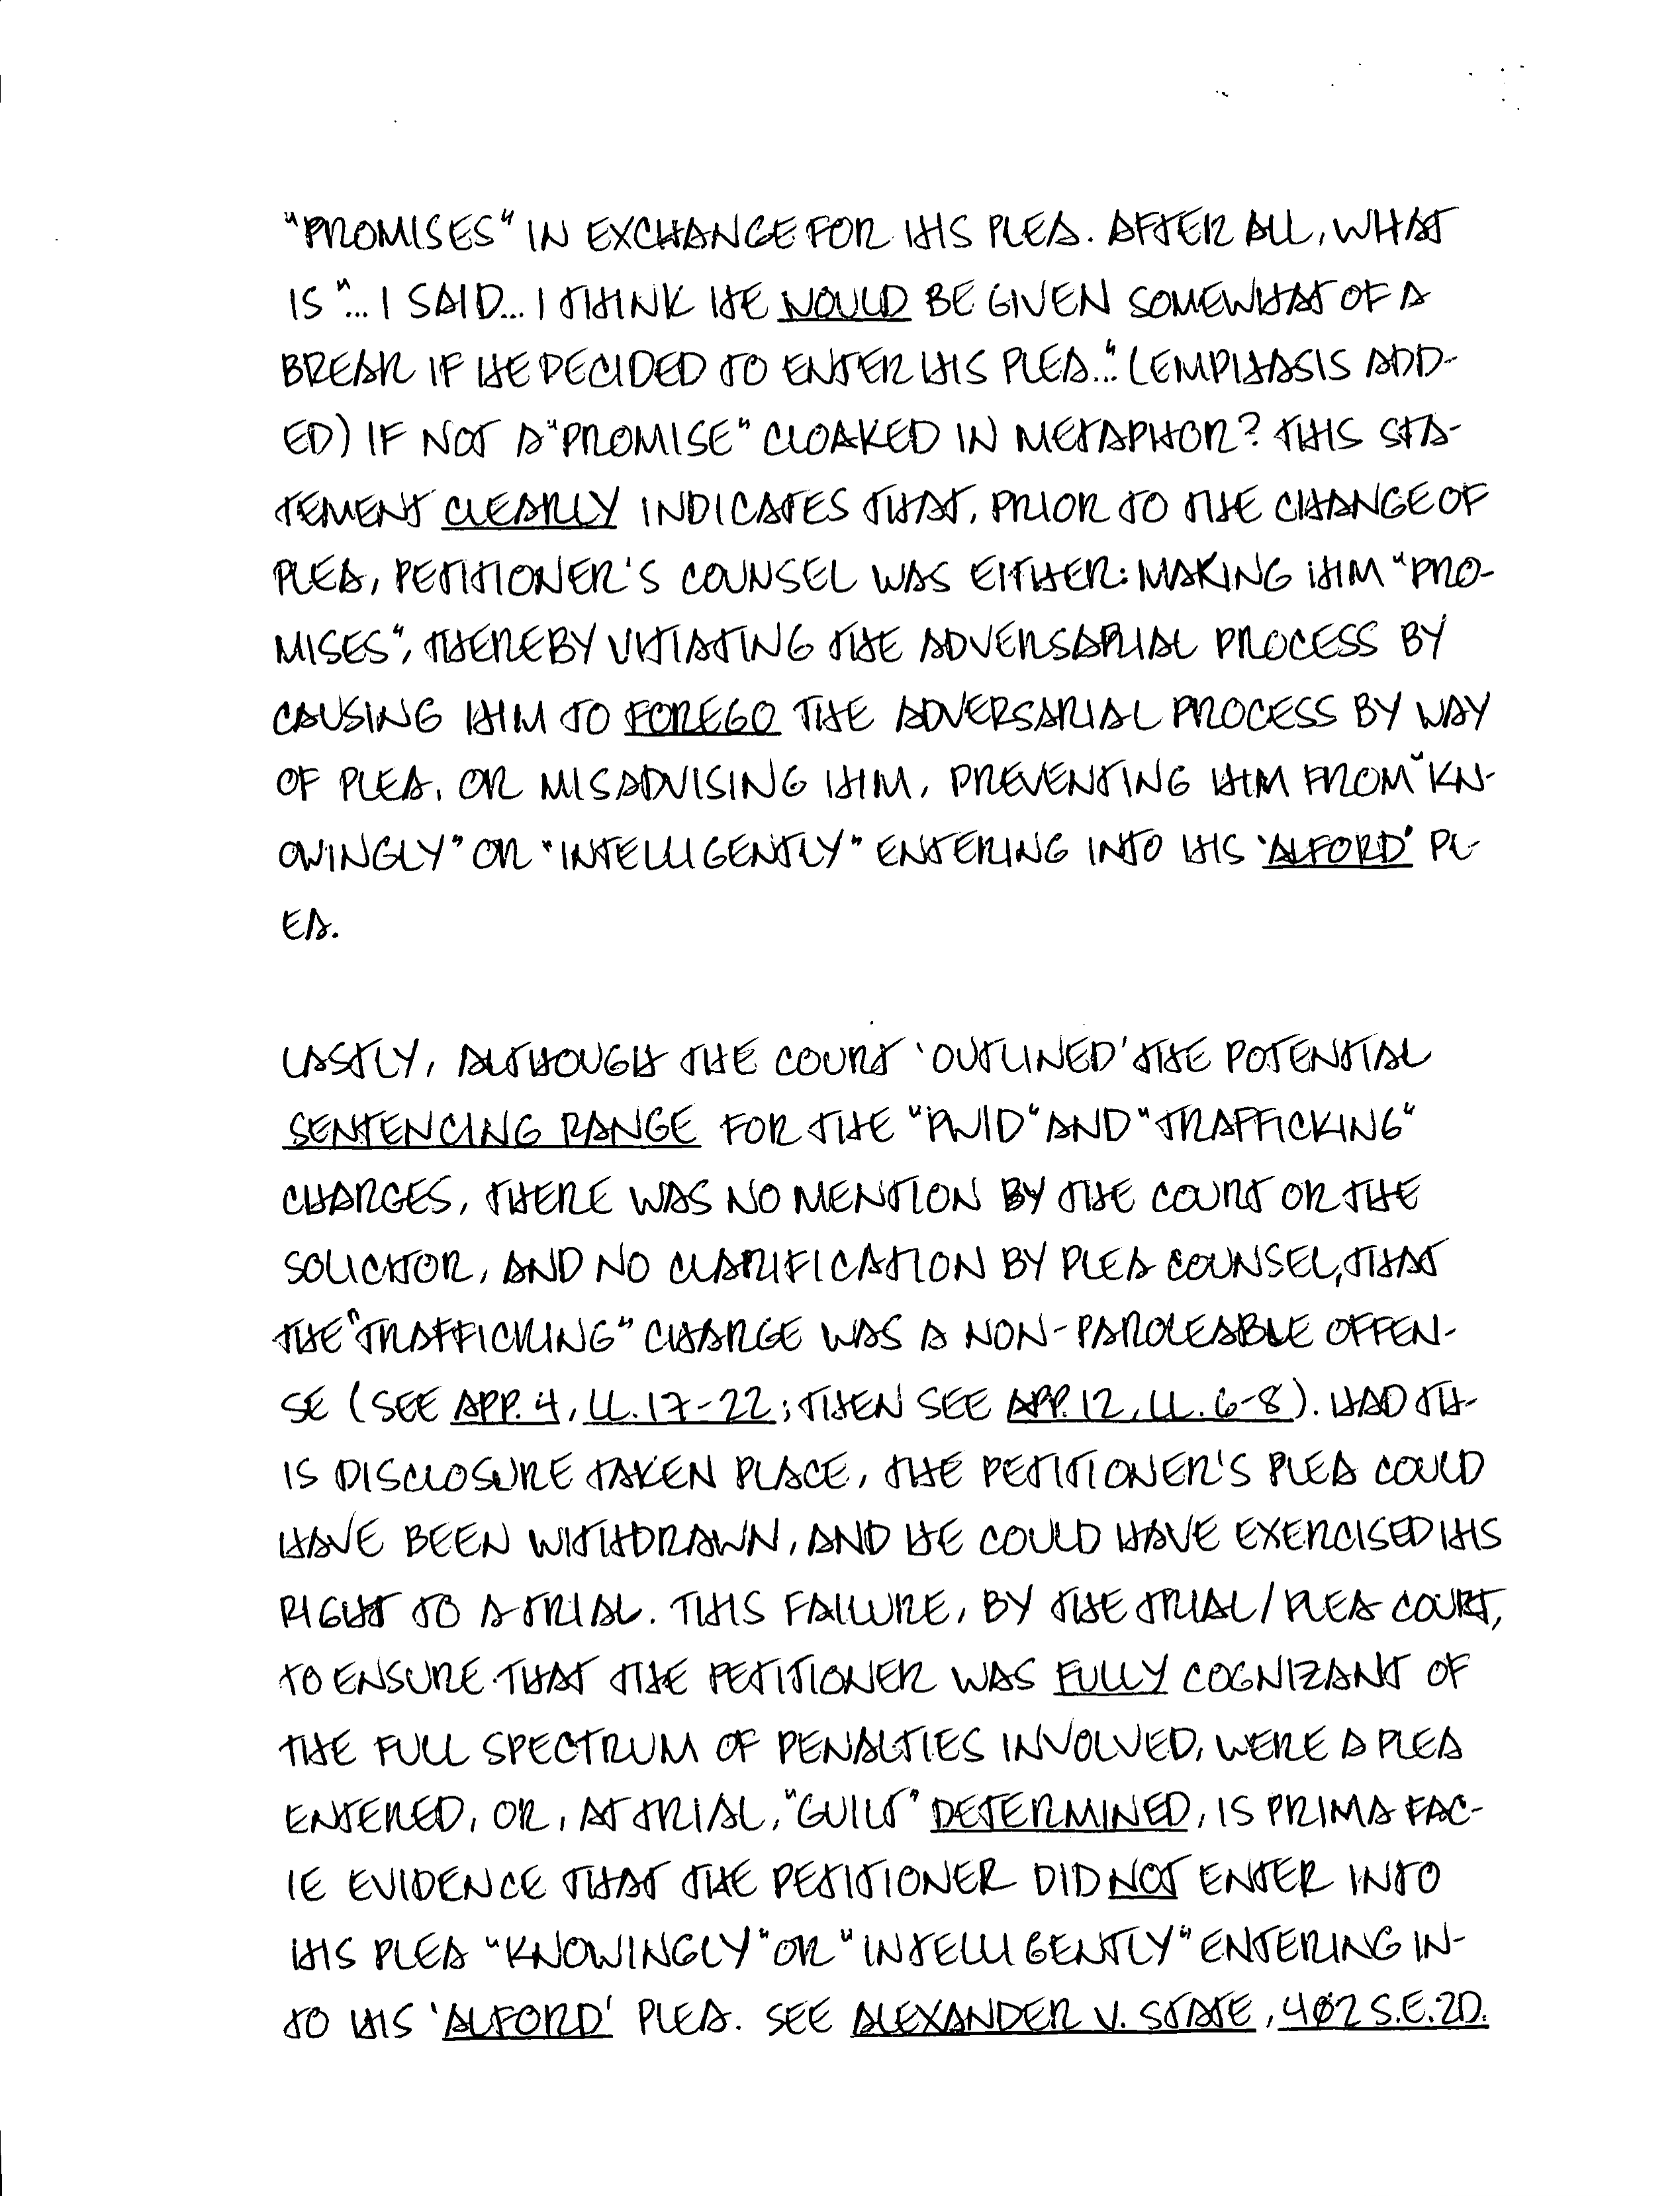 "PROMISES" IN EXCHANGE FOR HIS PLEA. AFTER ALL, WHAT
IS "... I SAID... I THINK HE WOULD BE GIVEN SOMEWHAT OF A
BREAK IF HE DECIDED TO ENTER HIS PLEA..." (EMPHASIS ADD-
ED) IF NOT A "PROMISE" CLOAKED IN METAPHOR? THIS STA-
TEMENT CLEARLY INDICATES THAT, PRIOR TO THE CHANGE OF
PLEA, PETITIONER'S COUNSEL WAS EITHER: MAKING HIM "PRO-
MISES", THEREBY VITIATING THE ADVERSARIAL PROCESS BY
CAUSING HIM TO FOREGO THE ADVERSARIAL PROCESS BY WAY
OF PLEA, OR MISADVISING HIM, PREVENTING HIM FROM "KN-
OWINGLY" OR "INTELLIGENTLY" ENTERING INTO HIS 'ALFORD' PL-
EA.
LASTLY, ALTHOUGH THE COURT 'OUTLINED' THE POTENTIAL
SENTENCING RANGE FOR THE "PWID" AND "TRAFFICKING"
CHARGES, THERE WAS NO MENTION BY THE COURT OR THE
SOLICITOR, AND NO CLARIFICATION BY PLEA COUNSEL, THAT
THE "TRAFFICKING" CHARGE WAS A NON-PAROLEABLE OFFEN-
SE (SEE APP. 4, LL. 17-22; THEN SEE APP. 12, LL. 6-8). HAD TH-
IS DISCLOSURE TAKEN PLACE, THE PETITIONER'S PLEA COULD
HAVE BEEN WITHDRAWN, AND HE COULD HAVE EXERCISED HIS
RIGHT TO A TRIAL. THIS FAILURE, BY THE TRIAL/PLEA COURT,
TO ENSURE THAT THE PETITIONER WAS FULLY COGNIZANT OF
THE FULL SPECTRUM OF PENALTIES INVOLVED, WERE A PLEA
ENTERED, OR, AT TRIAL, "GUILT" DETERMINED, IS PRIMA FAC-
IE EVIDENCE THAT THE PETITIONER DID NOT ENTER INTO
HIS PLEA "KNOWINGLY" OR "INTELLIGENTLY" ENTERING IN-
TO HIS 'ALFORD' PLEA. SEE ALEXANDER V. STATE, 402 S.E.2D.